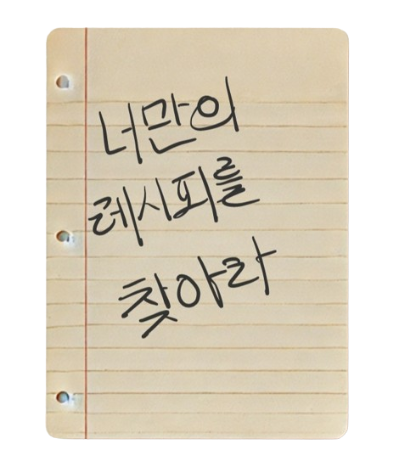 너만의
레시피를
찾아라